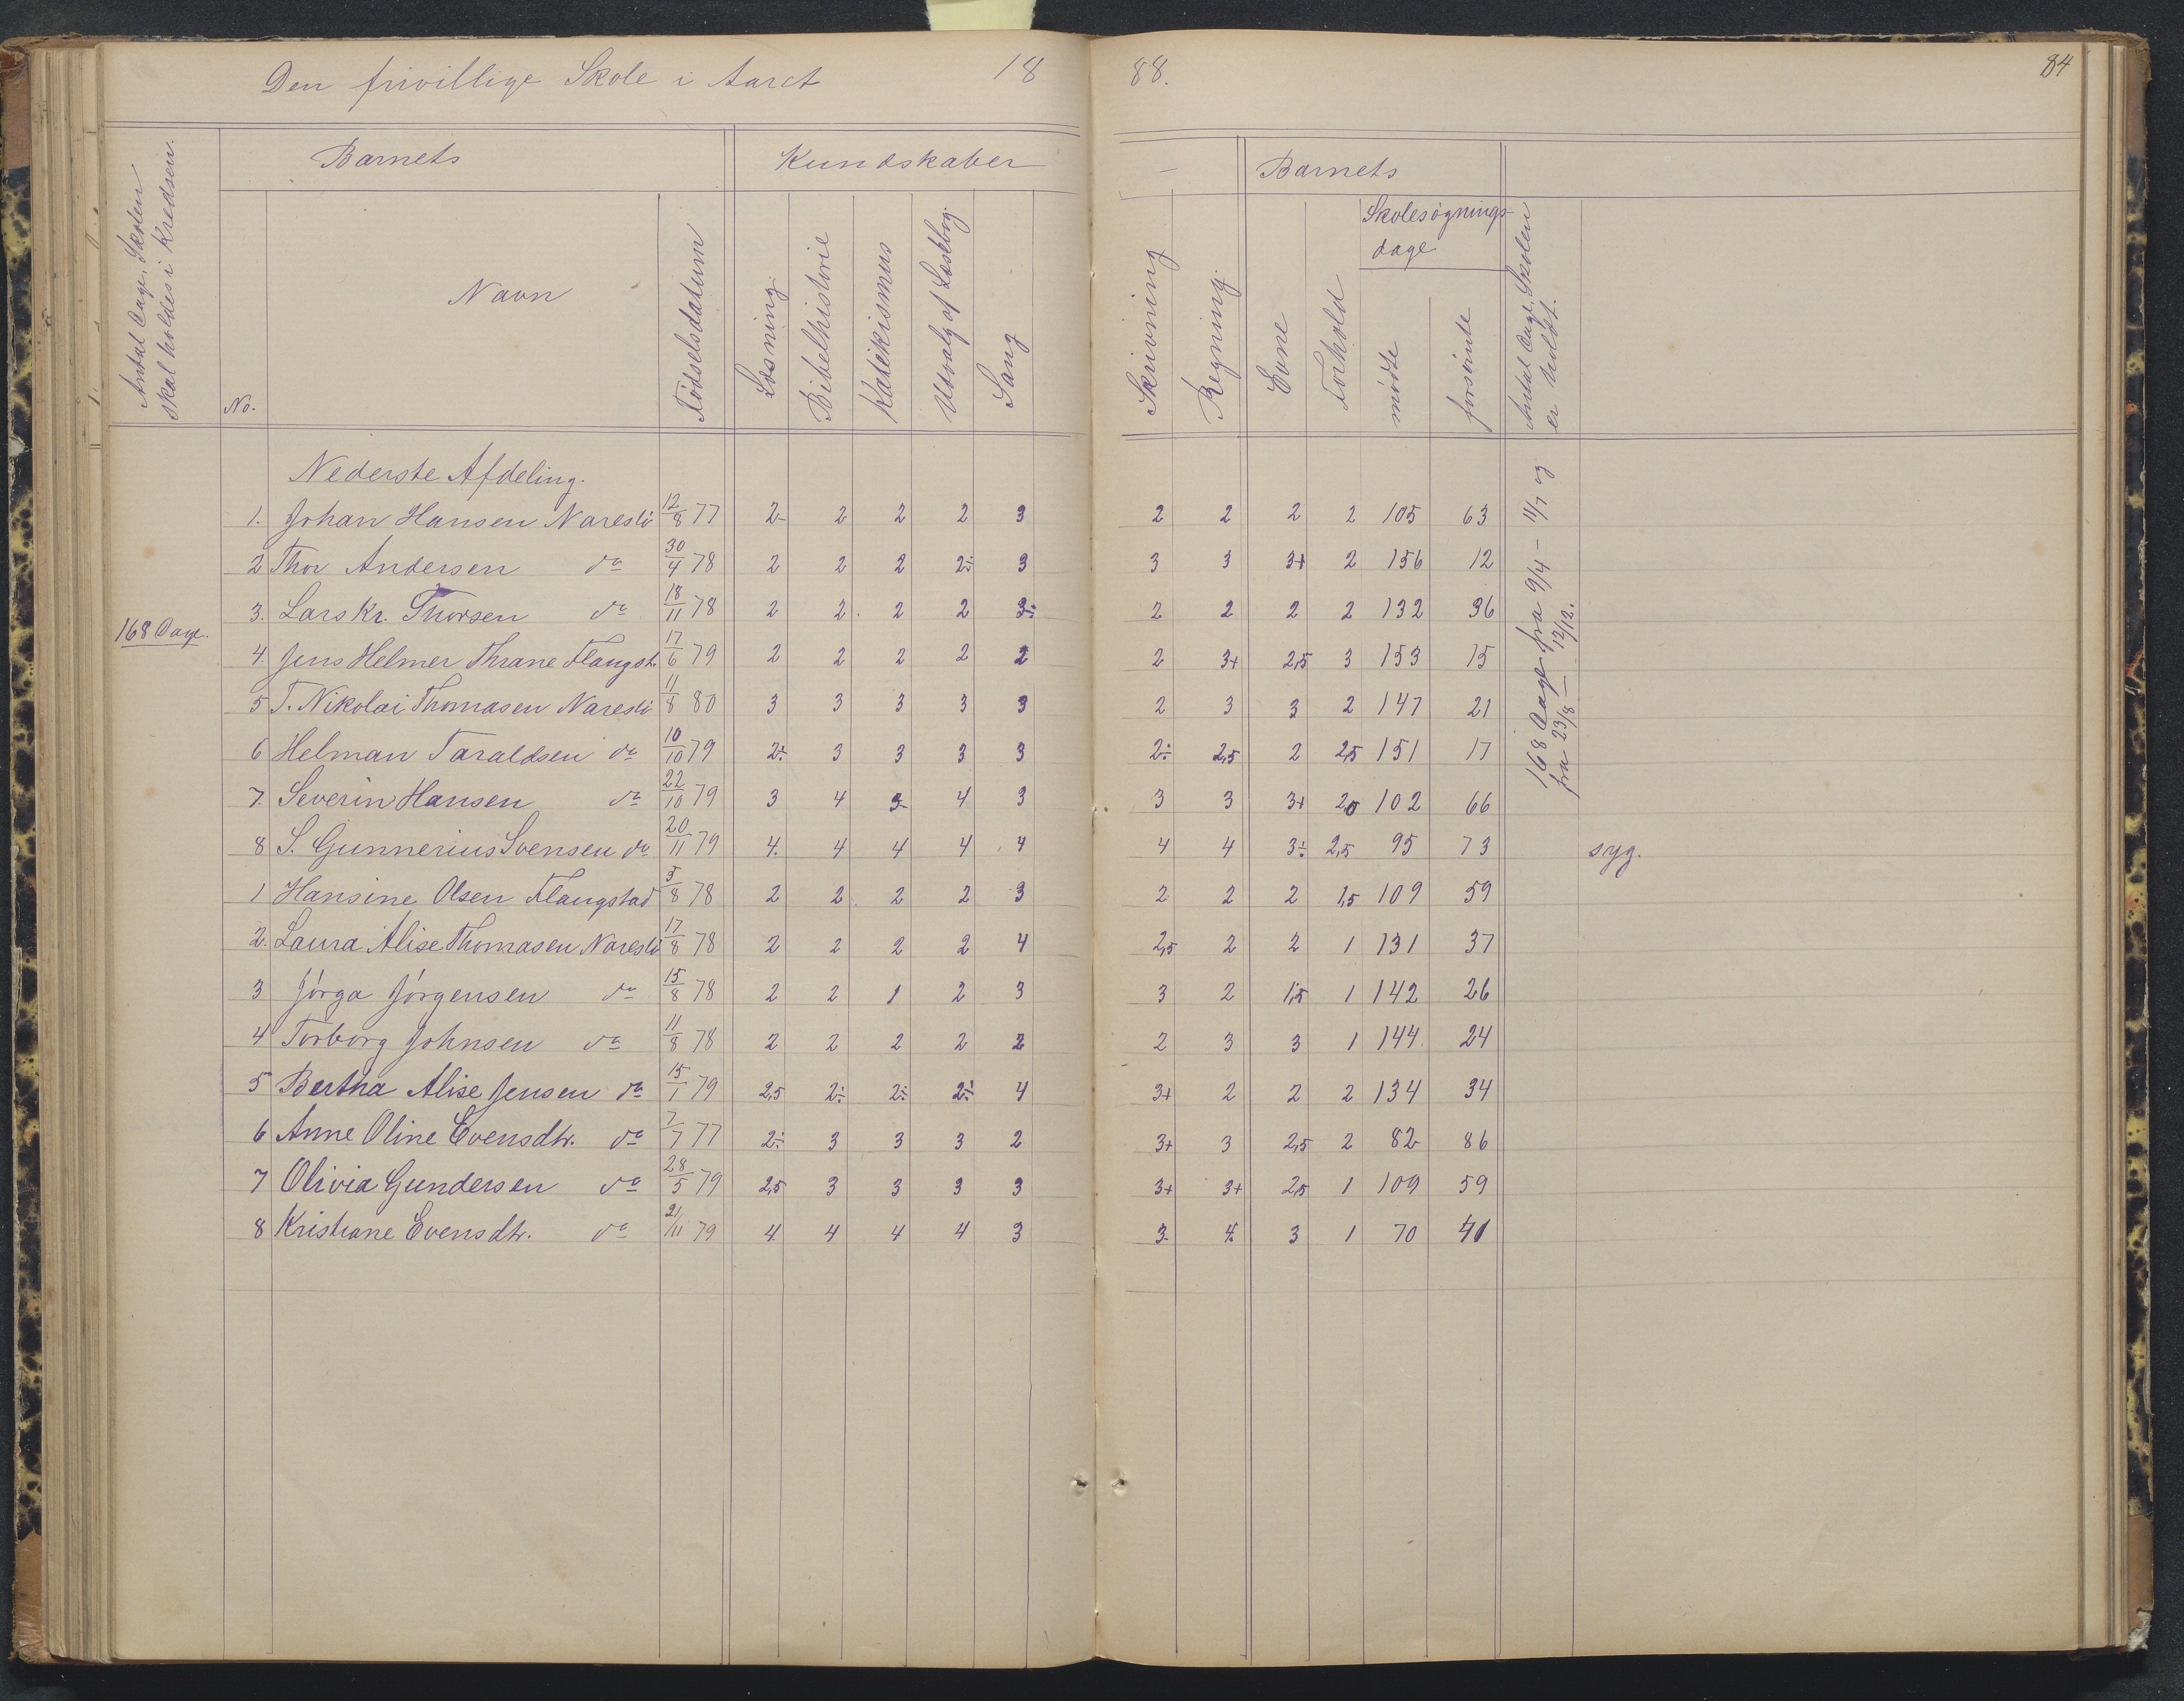 Den frivillige Skole i Aaret 18 88. 84
Antal Dage, Skolen skal holdes i Kredsen.
Barnets Kundskaber – Barnets
No. Navn Fødselsdatum Læsning Bibelhistorie Katekismus Udvalg af Læsebog. Sang Skrivning Regning. Evne Forhold Skolesøgnings-dage mødte forsømte Antal Dage, Skolen er holdt.
Nederste Afdeling.
168 Dage.
168 Dage fra 9/4 – 11/7 og
fra 23/8 – 12/12.
1. Johan Hansen Naresti 12/8 77 2- 2 2 2 3 2 2 2 2 105 63
2 Thor Andersen do 30/4 78 2 2 2 2÷ 3 3 3 3+ 2 156 12
3. Lars Kr. Thorsen do 18/11 78 2 2. 2 2 3÷ 2 2 2 2 132 36
4. Jens Helmer Thrane Flangst. 17/6 79 2 2 2 2 2 2 3+ 2,5 3 153 15
5 T. Nikolai Thomasen Naresti 11/8 80 3 3 3 3 3 2 3 3 2 147 21
6 Helman Taraldsen do 10/10 79 2÷ 3 3 3 3 2÷ 2,5 2 2,5 151 17
7. Severin Hansen do 22/10 79 3 4 3- 4 3 3 3 3+ 2,5 102 66
8 S. Gunnerius Svensen do 20/11 79 4. 4 4 4 4 4 4 3÷ 2,5 95 73 syg.
1 Hansine Olsen Flangstad 5/8 78 2 2. 2 2 3 2 2 2 1,5 109 59
2. Laura Alise Thomasen Naresti 17/8 78 2 2 2 2 4 2,5 2 2 1 131 37
3 Jørga Jørgensen do 15/8 78 2 2 1 2 3 3 2 1,5 1 142 26
4 Torborg Johnsen do 11/8 78 2 2 2 2 2 2 3 3 1 144. 24
5 Bertha Alise Jensen do 15/1 79 2,5 2÷ 2÷ 2÷ 4 3+ 2 2 2 134 34
6 Anne Oline Evensdtr. do 7/7 77 2÷ 3 3 3 2 3+ 3 2,5 2 82 86
7 Olivia Gundersen do 28/5 79 2,5 3 3 3 3 3+ 3+ 2,5 1 109 59
8 Kristiane Evensdtr. do 21/11 79 4 4 4 4 3 3- 4 3 1 70